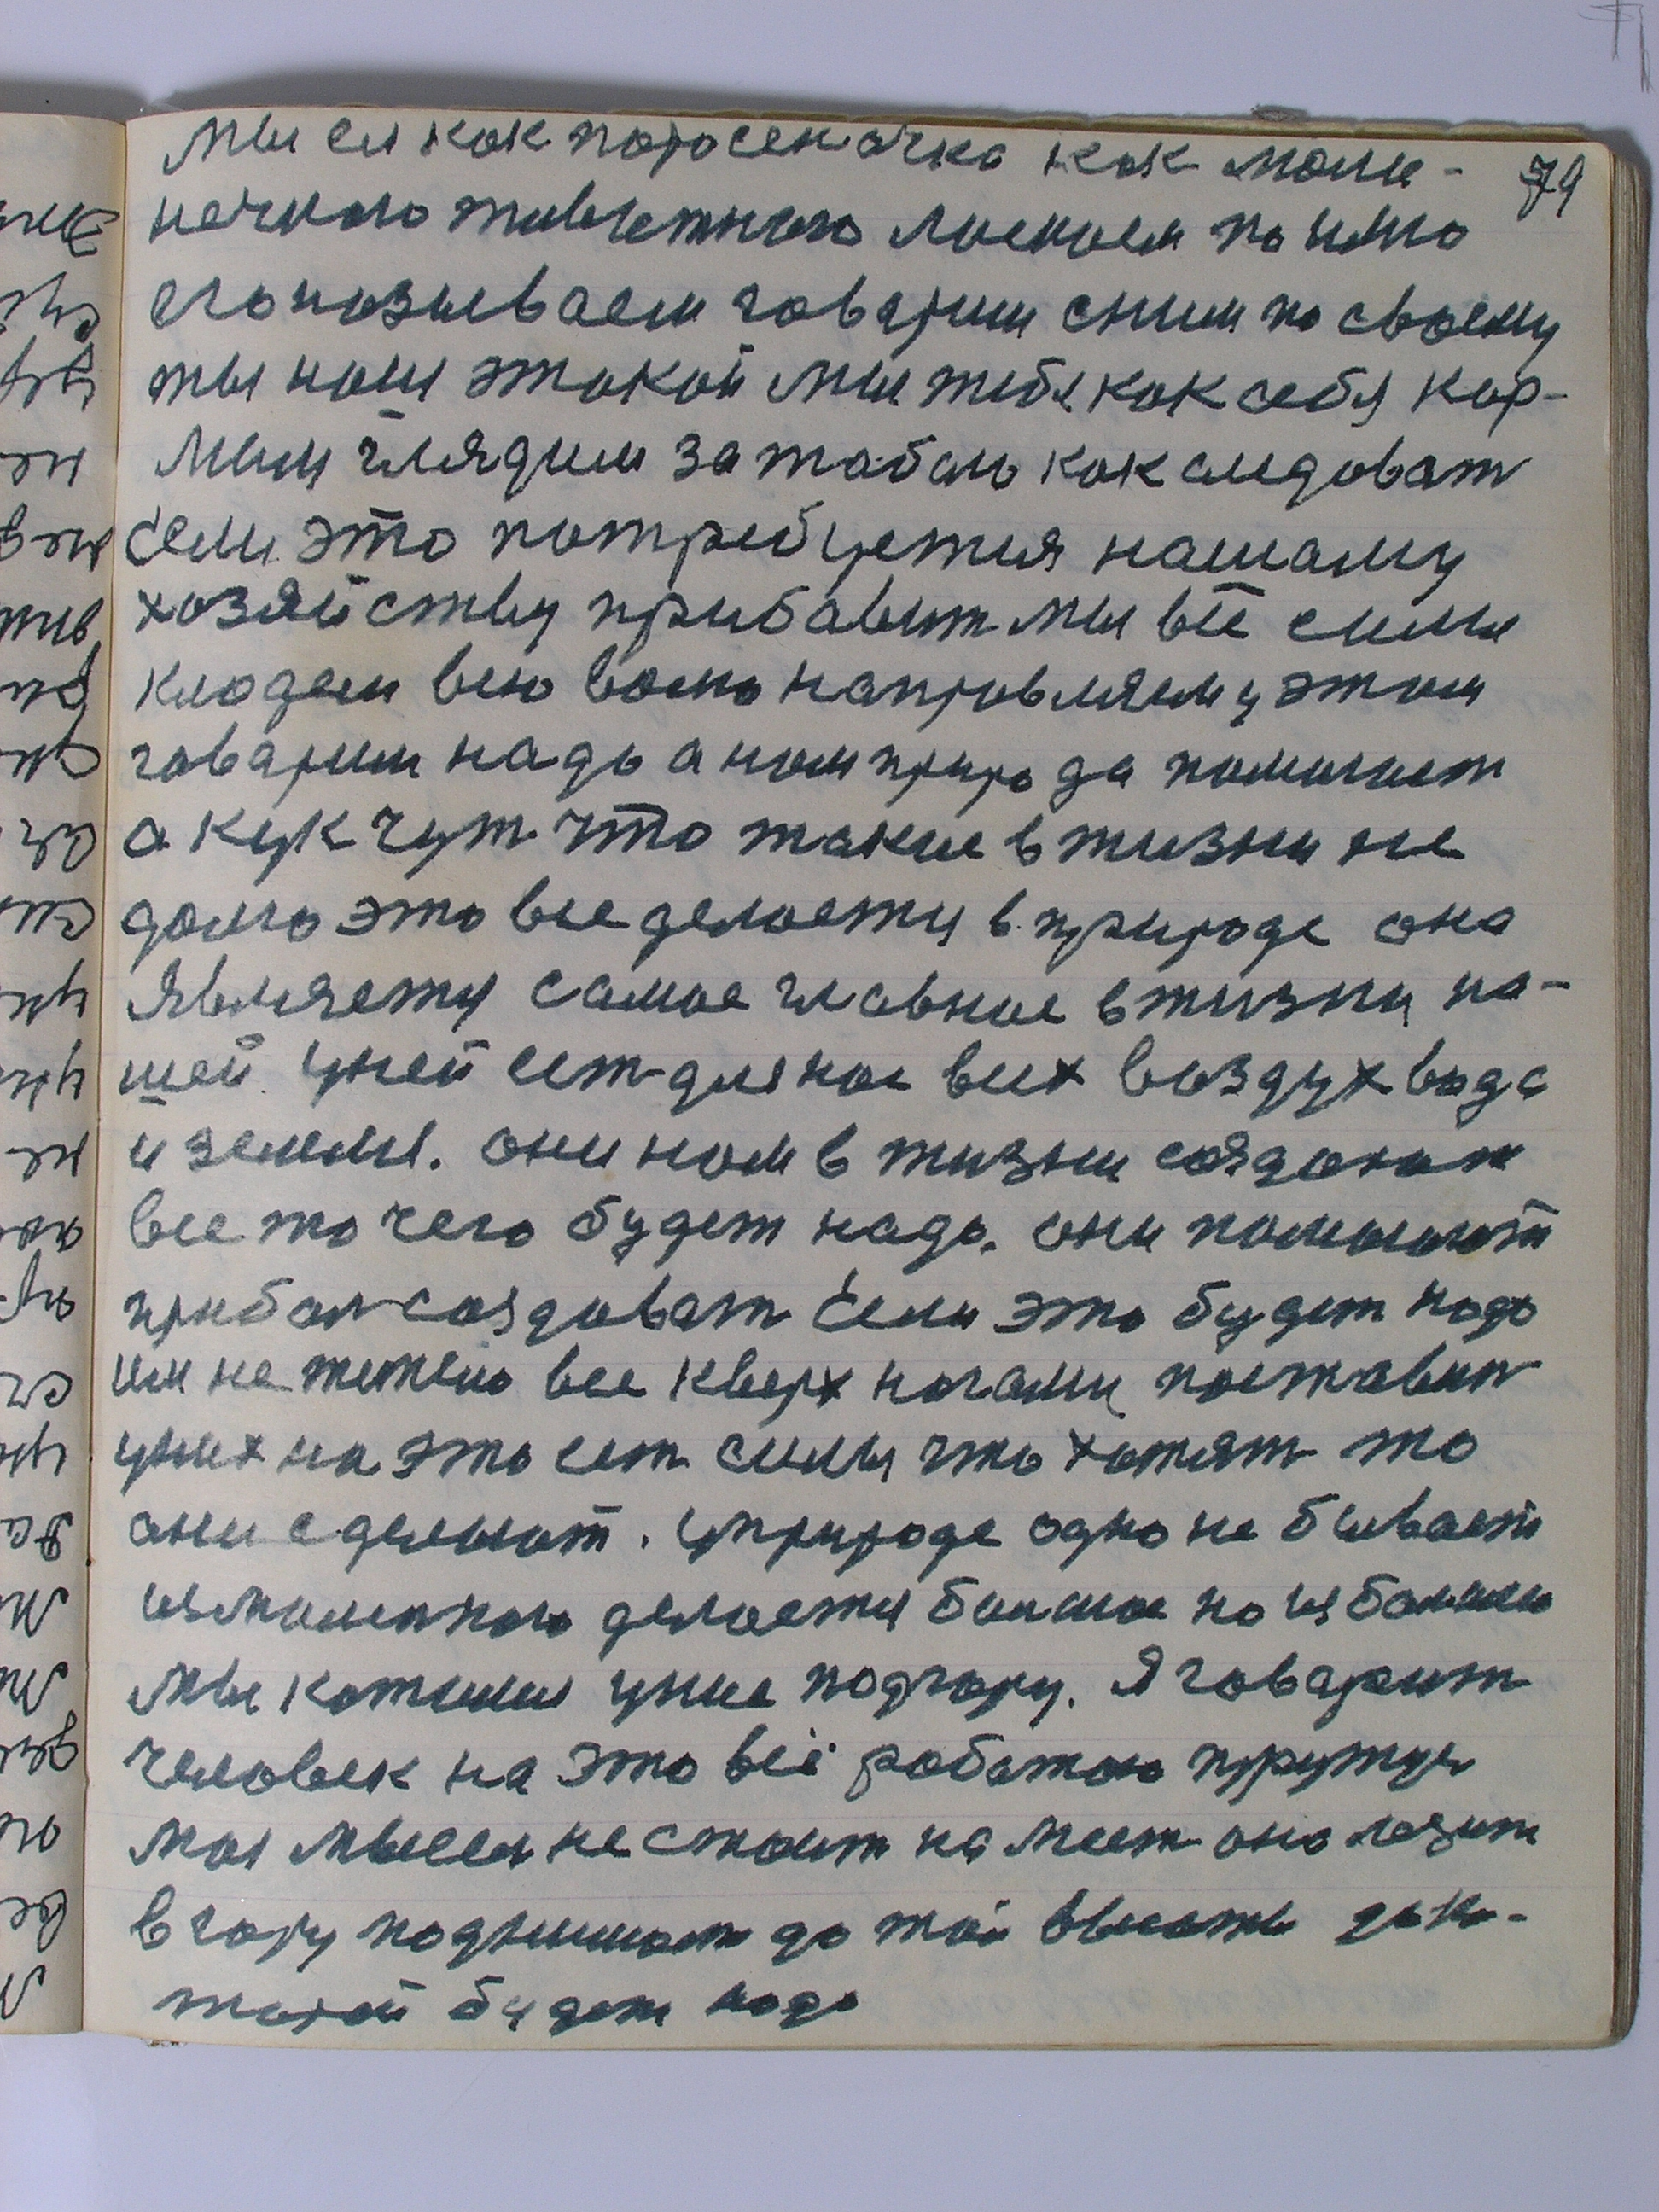 79
мы ея как поросеначка как мале-
нечкого животнего ласкаем по имю
его называем говарим сним по своему
ты наш этокой мы тебя как себя кар-
мим глядим за табою как следоват
если это потребуется нашаму
хозяйству прибавит мы всё силы
кладем всю волю направляем у этом
говарим надо а нам природа помогает
а кукчут что такие в жизни не
долго это все делоется в природе она
является самое главное в жизни на-
шей. уней ест для нас всех воздух вода
и земля. они нам в жизни создают
все то чего будет надо. они помогают
прибал создават если это будет надо
им не тежело все кверх ногами поставит
уних на это ест силы что хотят то
они сделают. уприроде одно не бывает
измаленкого делоется балшое но из балшого
мы котимся униз подгору. Я говарит
человек на это всё работаю тружус
моя мысел не стоит на мест она лезит
вгору поднимает до той высоты до ко-
торой будет надо